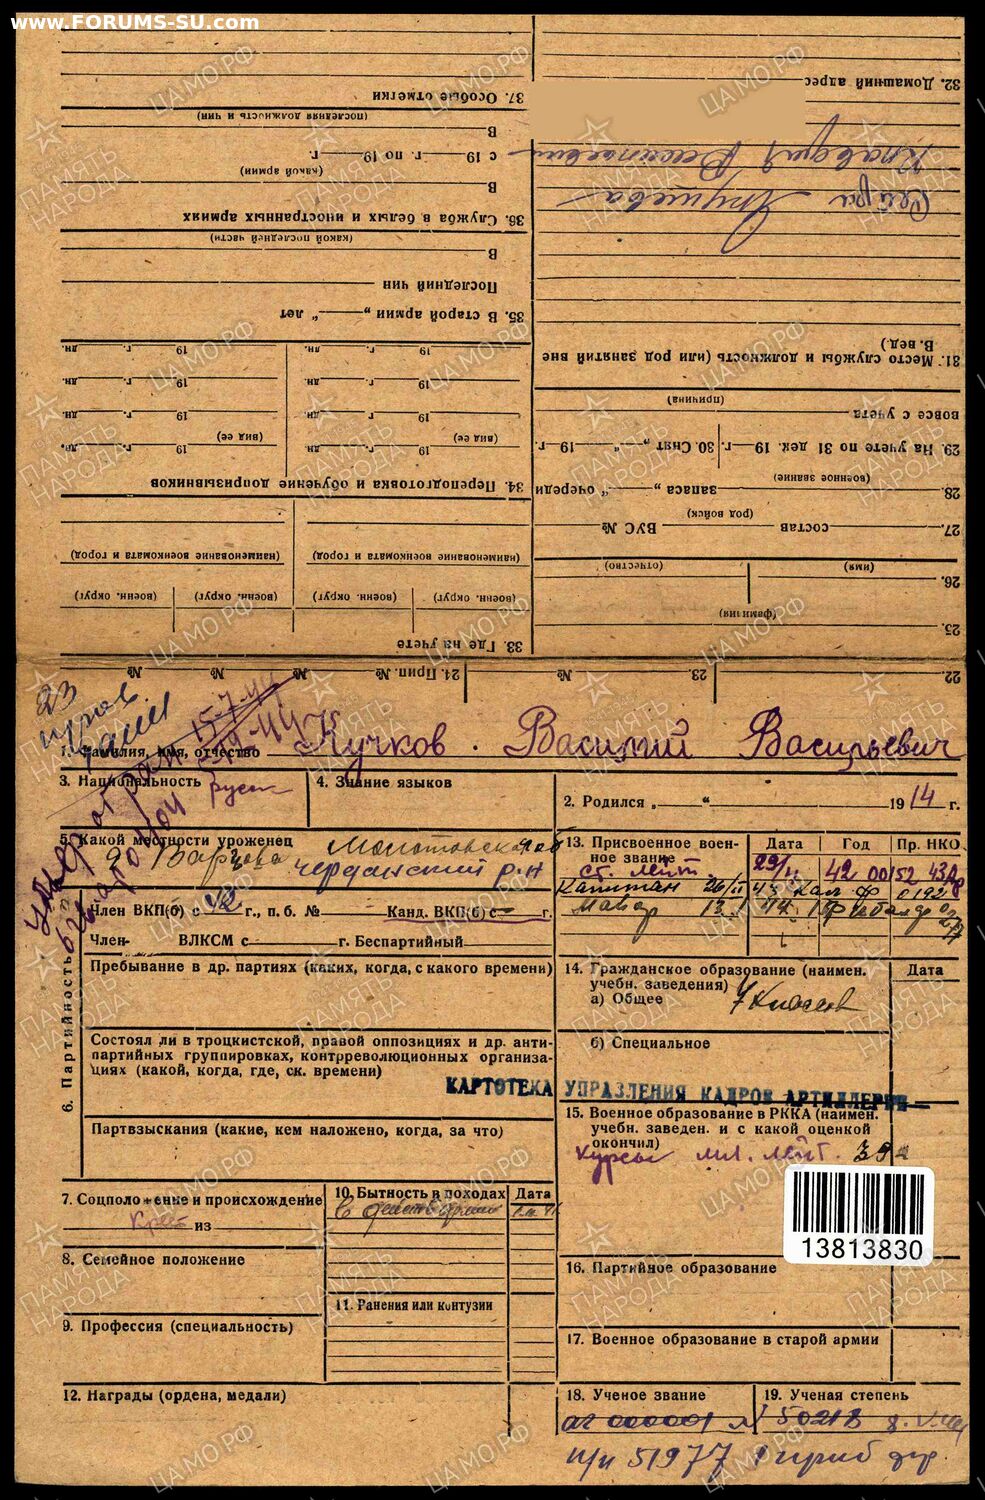 www.FORUMS-SU.com
37. Особые отметки
(последняя должность и чин)
В
с 19 г. по 19 г.
(какой армии)
В
36. Служба в белых и иностранных армиях
(какой последней части)
В
Последний чин
35. В старой армии „ “ лет
19 г. дн. 19 г. дн.
19 г. дн. 19 г. дн.
19 г. дн. 19 г. дн.
(вид ее) (вид ее)
19 г. дн. 19 г. дн.
34. Переподготовка и обучение допризывников
(наименование военкомата и город) (наименование военкомата и город)
(военн. округ) (военн. округ) (военн. округ) (военн. округ)
33. Где на учете
32. Домашний адрес
Клавдия
31. Место службы и должность (или род занятий вне
В. вед.)
(причина)
вовсе с учета
29. На учете по 31 дек. 19 г. 30. Снят „ “ 19 г.
(военное звание)
28. запаса „ “ очереди
(род войск)
27. состав ВУС №
(имя) (отчество)
26.
(фамилия)
25.
22. № 23. № 24. Прип. № №
15-7-44
1. Фамилия, имя, отчество Кучков Василий Васильевич
3. Национальность русск
4. Знание языков
2. Родился „ “ 1914 г.
5. Какой местности уроженец Молотовская обл
д. Чердынский р-н
13. Присвоенное воен-
ное звание Дата Год Пр. НКО
ст. лейт. 29/ 42 00152
Капитан 26/II 43 0192
Майор 13.
6. Партийность
Член ВКП(б) с 42 г., п. б. № Канд. ВКП(б) с г.
Член ВЛКСМ с г. Беспартийный
Пребывание в др. партиях (каких, когда, с какого времени)
Состоял ли в троцкистской, правой оппозициях и др. анти-
партийных группировках, контрреволюционных организа-
циях (какой, когда, где, ск. времени)
КАРТОТЕКА УПРАВЛЕНИЯ КАДРОВ АРТИЛЛЕРИИ
Партвзыскания (какие, кем наложено, когда, за что)
14. Гражданское образование (наимен.
учебн. заведения) Дата
а) Общее 7 классов
б) Специальное
15. Военное образование в РККА (наимен.
учебн. заведен. и с какой оценкой
окончил)
курсы мл. лейт. 39
13813830
7. Соцположение и происхождение
Крест из
8. Семейное положение
9. Профессия (специальность)
10. Бытность в походах Дата
В действ. армии
11. Ранения или контузии
12. Награды (ордена, медали)
16. Партийное образование
17. Военное образование в старой армии
18. Ученое звание
19. Ученая степень
000001 50218
п/п 51977 1
ЦАМО.РФ
ПАМЯТЬ НАРОДА